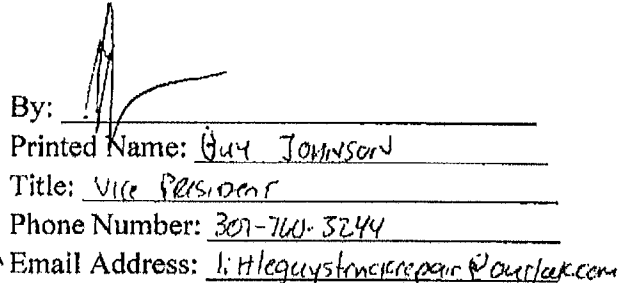 By:
Printed Name: Guy Johnson
Title: Vice President
Phone Number: 307-760-3244
Email Address: littleguystruckrepair@outlook.com